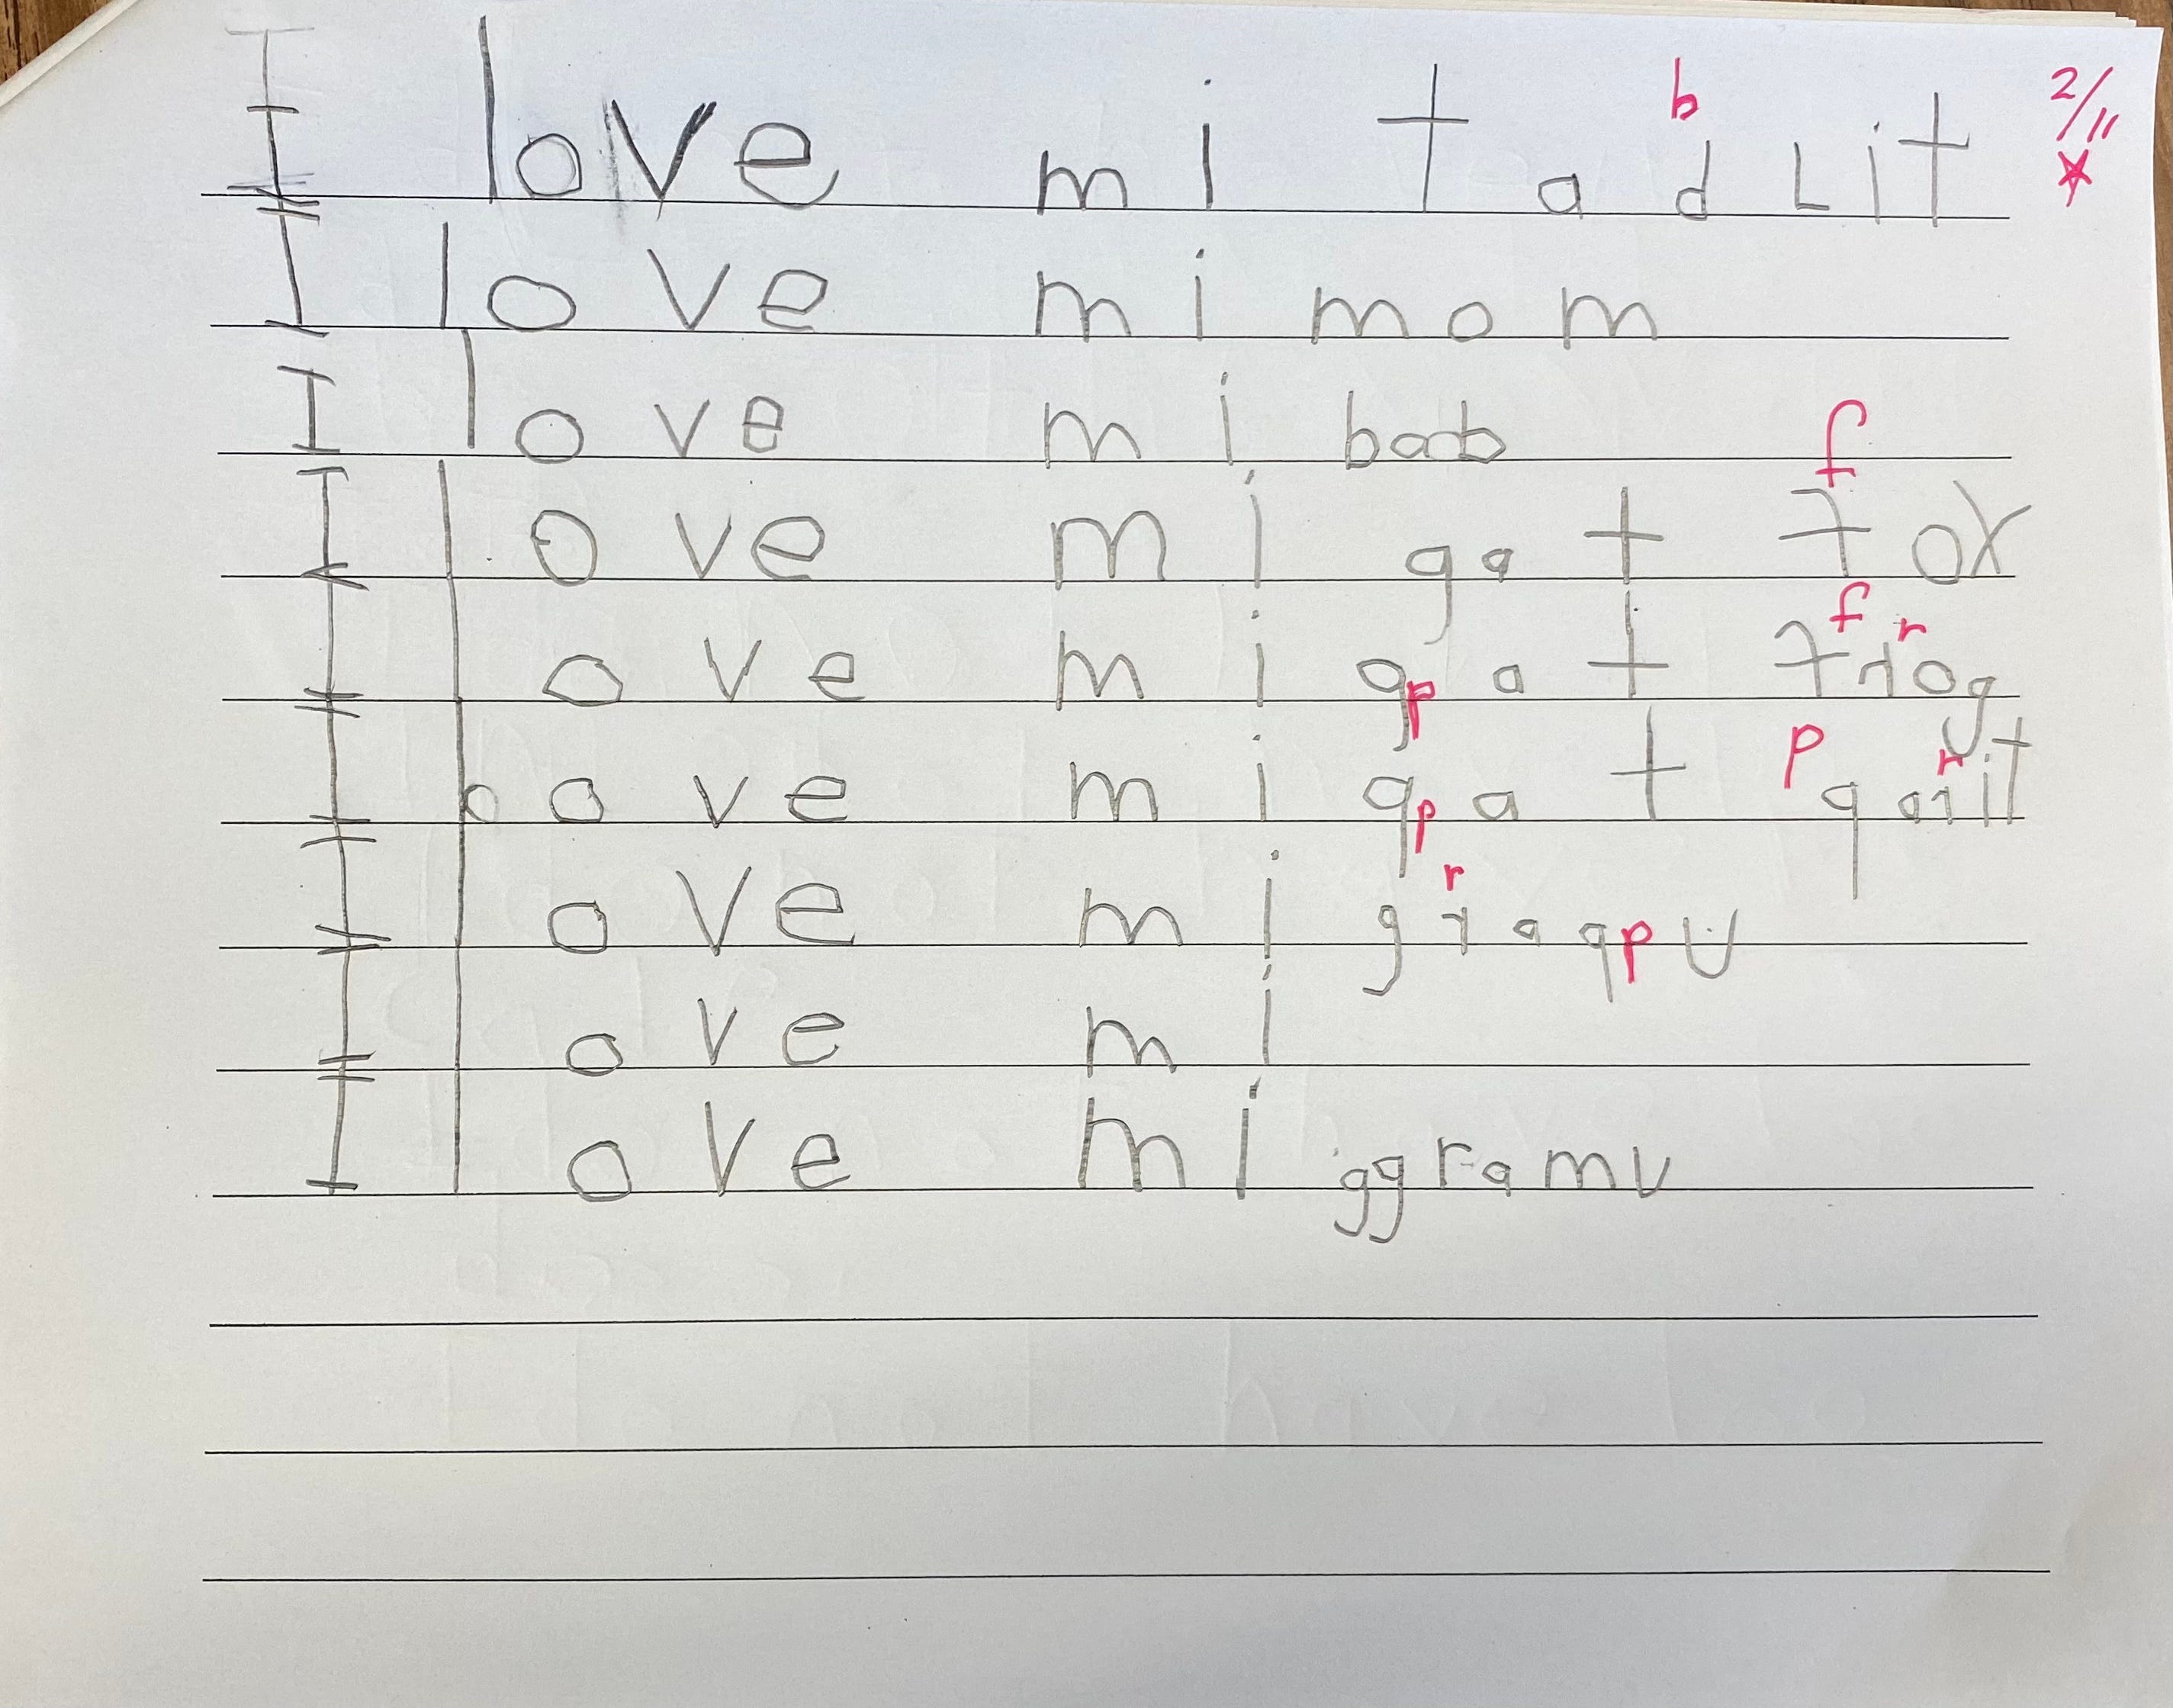 b 2/11
I love mi tadLit ★
I love mi mom
I love mi bab
f
I love mi gat fox
f r
I love mi qpat frog
p r
I love mi qpat qarit
r
I love mi graqpU
I love mi
I love mi ggramu